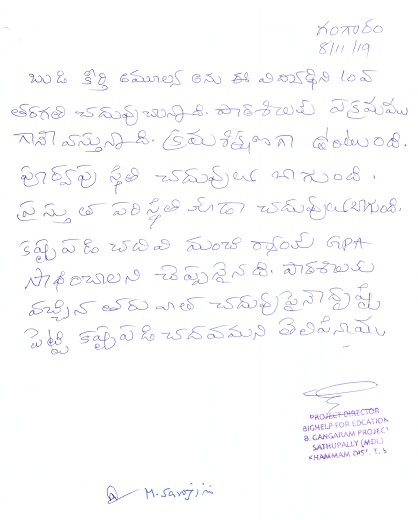 గంగారం
8/11/19
బుడి కీర్తి అమూల్య అను ఈ విద్యార్థిని 10వ
తరగతి చదువుచున్నాది. పాఠశాలకు సక్రమము
గానే వస్తున్నాది. క్రమశిక్షణగా ఉంటుంది.
పూర్వపు స్థితి చదువులు బాగుంది.
ప్రస్తుత పరిస్థితి కూడా చదువులు బాగుంది.
కష్టపడి చదివి మంచి ర్యాంక్ GPA
సాధించాలని చెప్పనైనది. పాఠశాలకు
వచ్చిన తరువాత చదువుపైనే దృష్టి
పెట్టి కష్టపడి చదవమని తెలిపినాము
PROJECT DIRECTOR
BIGHELP FOR EDCATION
B. GANGARAM PROJECT
SATHUPALLY (MDL)
KHAMMAM DIST. T. S
M. Sarojini